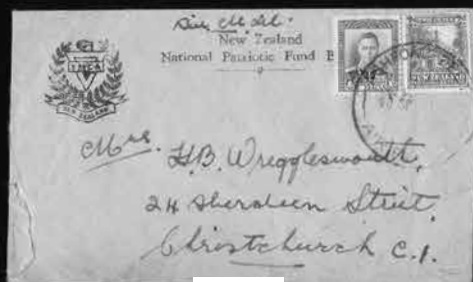 Air Mail.
New Zealand
National Patriotic Fund B
Y.M.C.A.
NEW ZEALAND
NEW ZEALAND
Mrs. H.B. Wregglesworth,
24 Aberdeen Street,
Christchurch C.1.